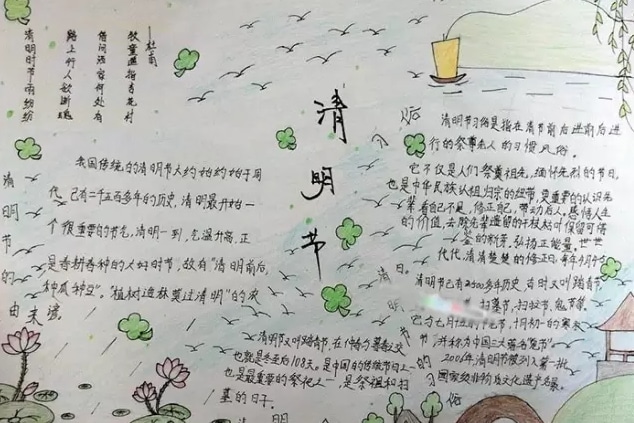 杜甫
清明时节雨纷纷
路上行人欲断魂
借问酒家何处有
牧童遥指杏花村
清明节
清明节的由来
我国传统的清明节大约始于周
代,已有二千五百多年的历史,清明最开始一
个很重要的节气,清明一到,气温升高,正
是春耕春种的大好时节,故有"清明前后,
种瓜种豆"。"植树造林莫过清明"的
清明节又叫踏青节,在仲春与暮春之交
也就是冬至后108天。是中国的传统节日
也是最重要的祭祀 一,是祭祖和扫
墓的日子。
清明节习俗
清明节习俗是指在清节前后进前后进
行的祭奠先人的习惯风俗。
它不仅是人们祭奠祖先,缅怀先烈的节日,
也是中华民族认祖归宗的纽带,更重要的认识先
辈看自己不足,修正自己,带动后人。感悟人生
的价值,去除先辈遗留的 保留可借
鉴的 弘扬正能量,世世
代代,清清楚楚的修正日。每年4月
日。
清明节已有2500多年历史,古时又叫踏青节
扫墓节、
它与七月 十月初一的寒衣
节,并称为中国三大著名鬼节"
2006年清明节被列入第一批
国家级非物质文化遗产名录。